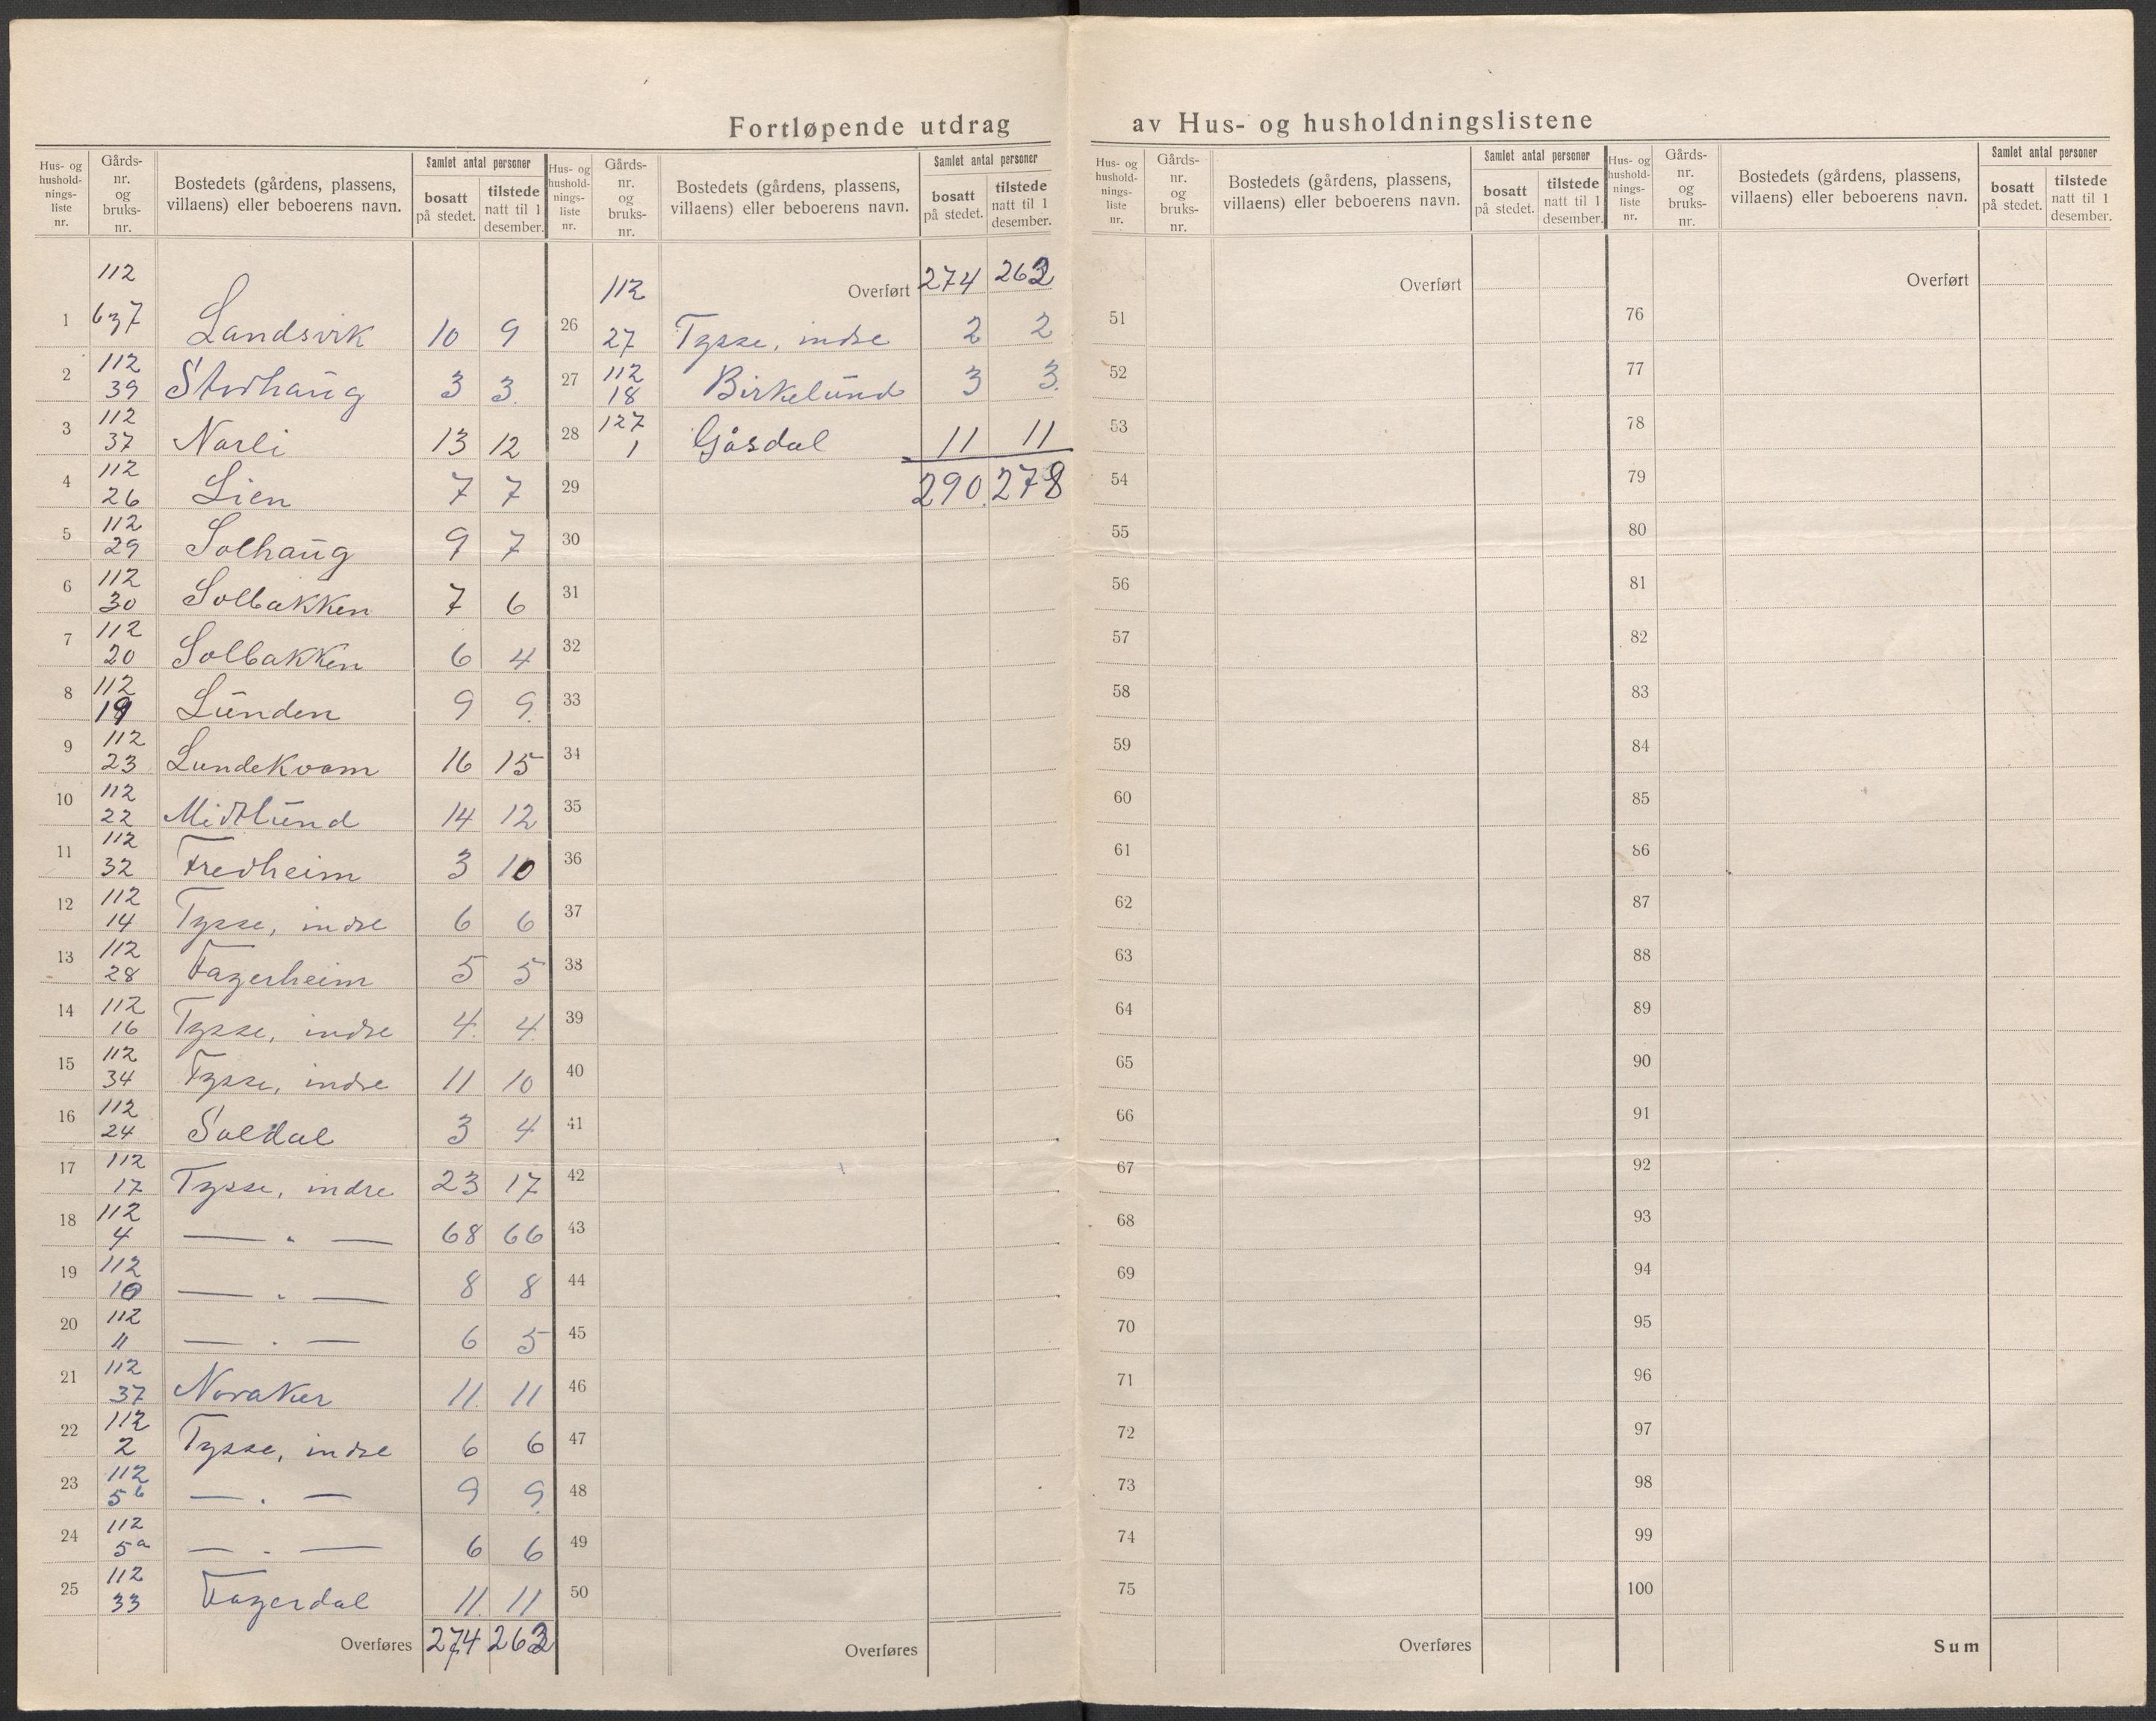 Fortløpende utdrag av Hus- og husholdningslistene
Hus- og hushold-nings-liste nr. | Gårds-nr. og bruks-nr. | Bostedets (gårdens, plassens, villaens) eller beboerens navn. | Samlet antal personer | bosatt på stedet. | tilstede natt til 1 desember.
1 112 637 Landsvik 10 9
2 112 39 Storhaug 3 3
3 112 37 Narli 13 12
4 112 26 Lien 7 7
5 112 29 Solhaug 9 7
6 112 30 Solbakken 7 6
7 112 20 Solbakken 6 4
8 112 19 Lunden 9 9
9 112 23 Lundekvam 16 15
10 112 22 Midtlund 14 12
11 112 32 Fredheim 3 10
12 112 14 Tysse, indre 6 6
13 112 28 Fagerheim 5 5
14 112 16 Tysse, indre 4 4
15 112 34 Tysse, indre 11 10
16 112 24 Soldal 3 4
17 112 17 Tysse, indre 23 17
18 112 4 — " — 68 66
19 112 10 — " — 8 8
20 112 11 — " — 6 5
21 112 37 Noraker 11 11
22 112 2 Tysse, indre 6 6
23 112 5b — " — 9 9
24 112 5a — " — 6 6
25 112 33 Fagerdal 11 11
Overføres 274 262
Hus- og hushold-nings-liste nr. | Gårds-nr. og bruks-nr. | Bostedets (gårdens, plassens, villaens) eller beboerens navn. | Samlet antal personer | bosatt på stedet. | tilstede natt til 1 desember.
Overført 274 262
26 112 27 Tysse, indre 2 2
27 112 18 Birkelund 3 3
28 127 1 Gåsdal 11 11
29 290 278
30
31
32
33
34
35
36
37
38
39
40
41
42
43
44
45
46
47
48
49
50
Overføres
Hus- og hushold-nings-liste nr. | Gårds-nr. og bruks-nr. | Bostedets (gårdens, plassens, villaens) eller beboerens navn. | Samlet antal personer | bosatt på stedet. | tilstede natt til 1 desember.
Overført
51
52
53
54
55
56
57
58
59
60
61
62
63
64
65
66
67
68
69
70
71
72
73
74
75
Overføres
Hus- og hushold-nings-liste nr. | Gårds-nr. og bruks-nr. | Bostedets (gårdens, plassens, villaens) eller beboerens navn. | Samlet antal personer | bosatt på stedet. | tilstede natt til 1 desember.
Overført
76
77
78
79
80
81
82
83
84
85
86
87
88
89
90
91
92
93
94
95
96
97
98
99
100
Sum